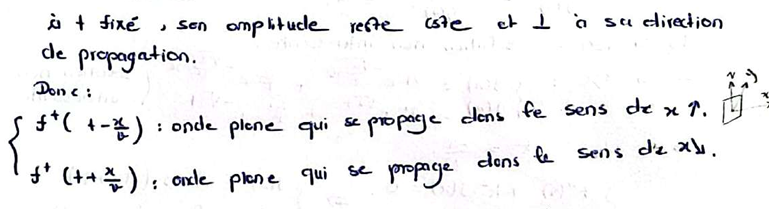 à t fixé, son amplitude reste cste et ⊥ à sa direction
de propagation.
Donc :
f⁺(t - x/v) : onde plane qui se propage dans le sens de x ↑.
f⁺(t + x/v) : onde plane qui se propage dans le sens de x ↓.